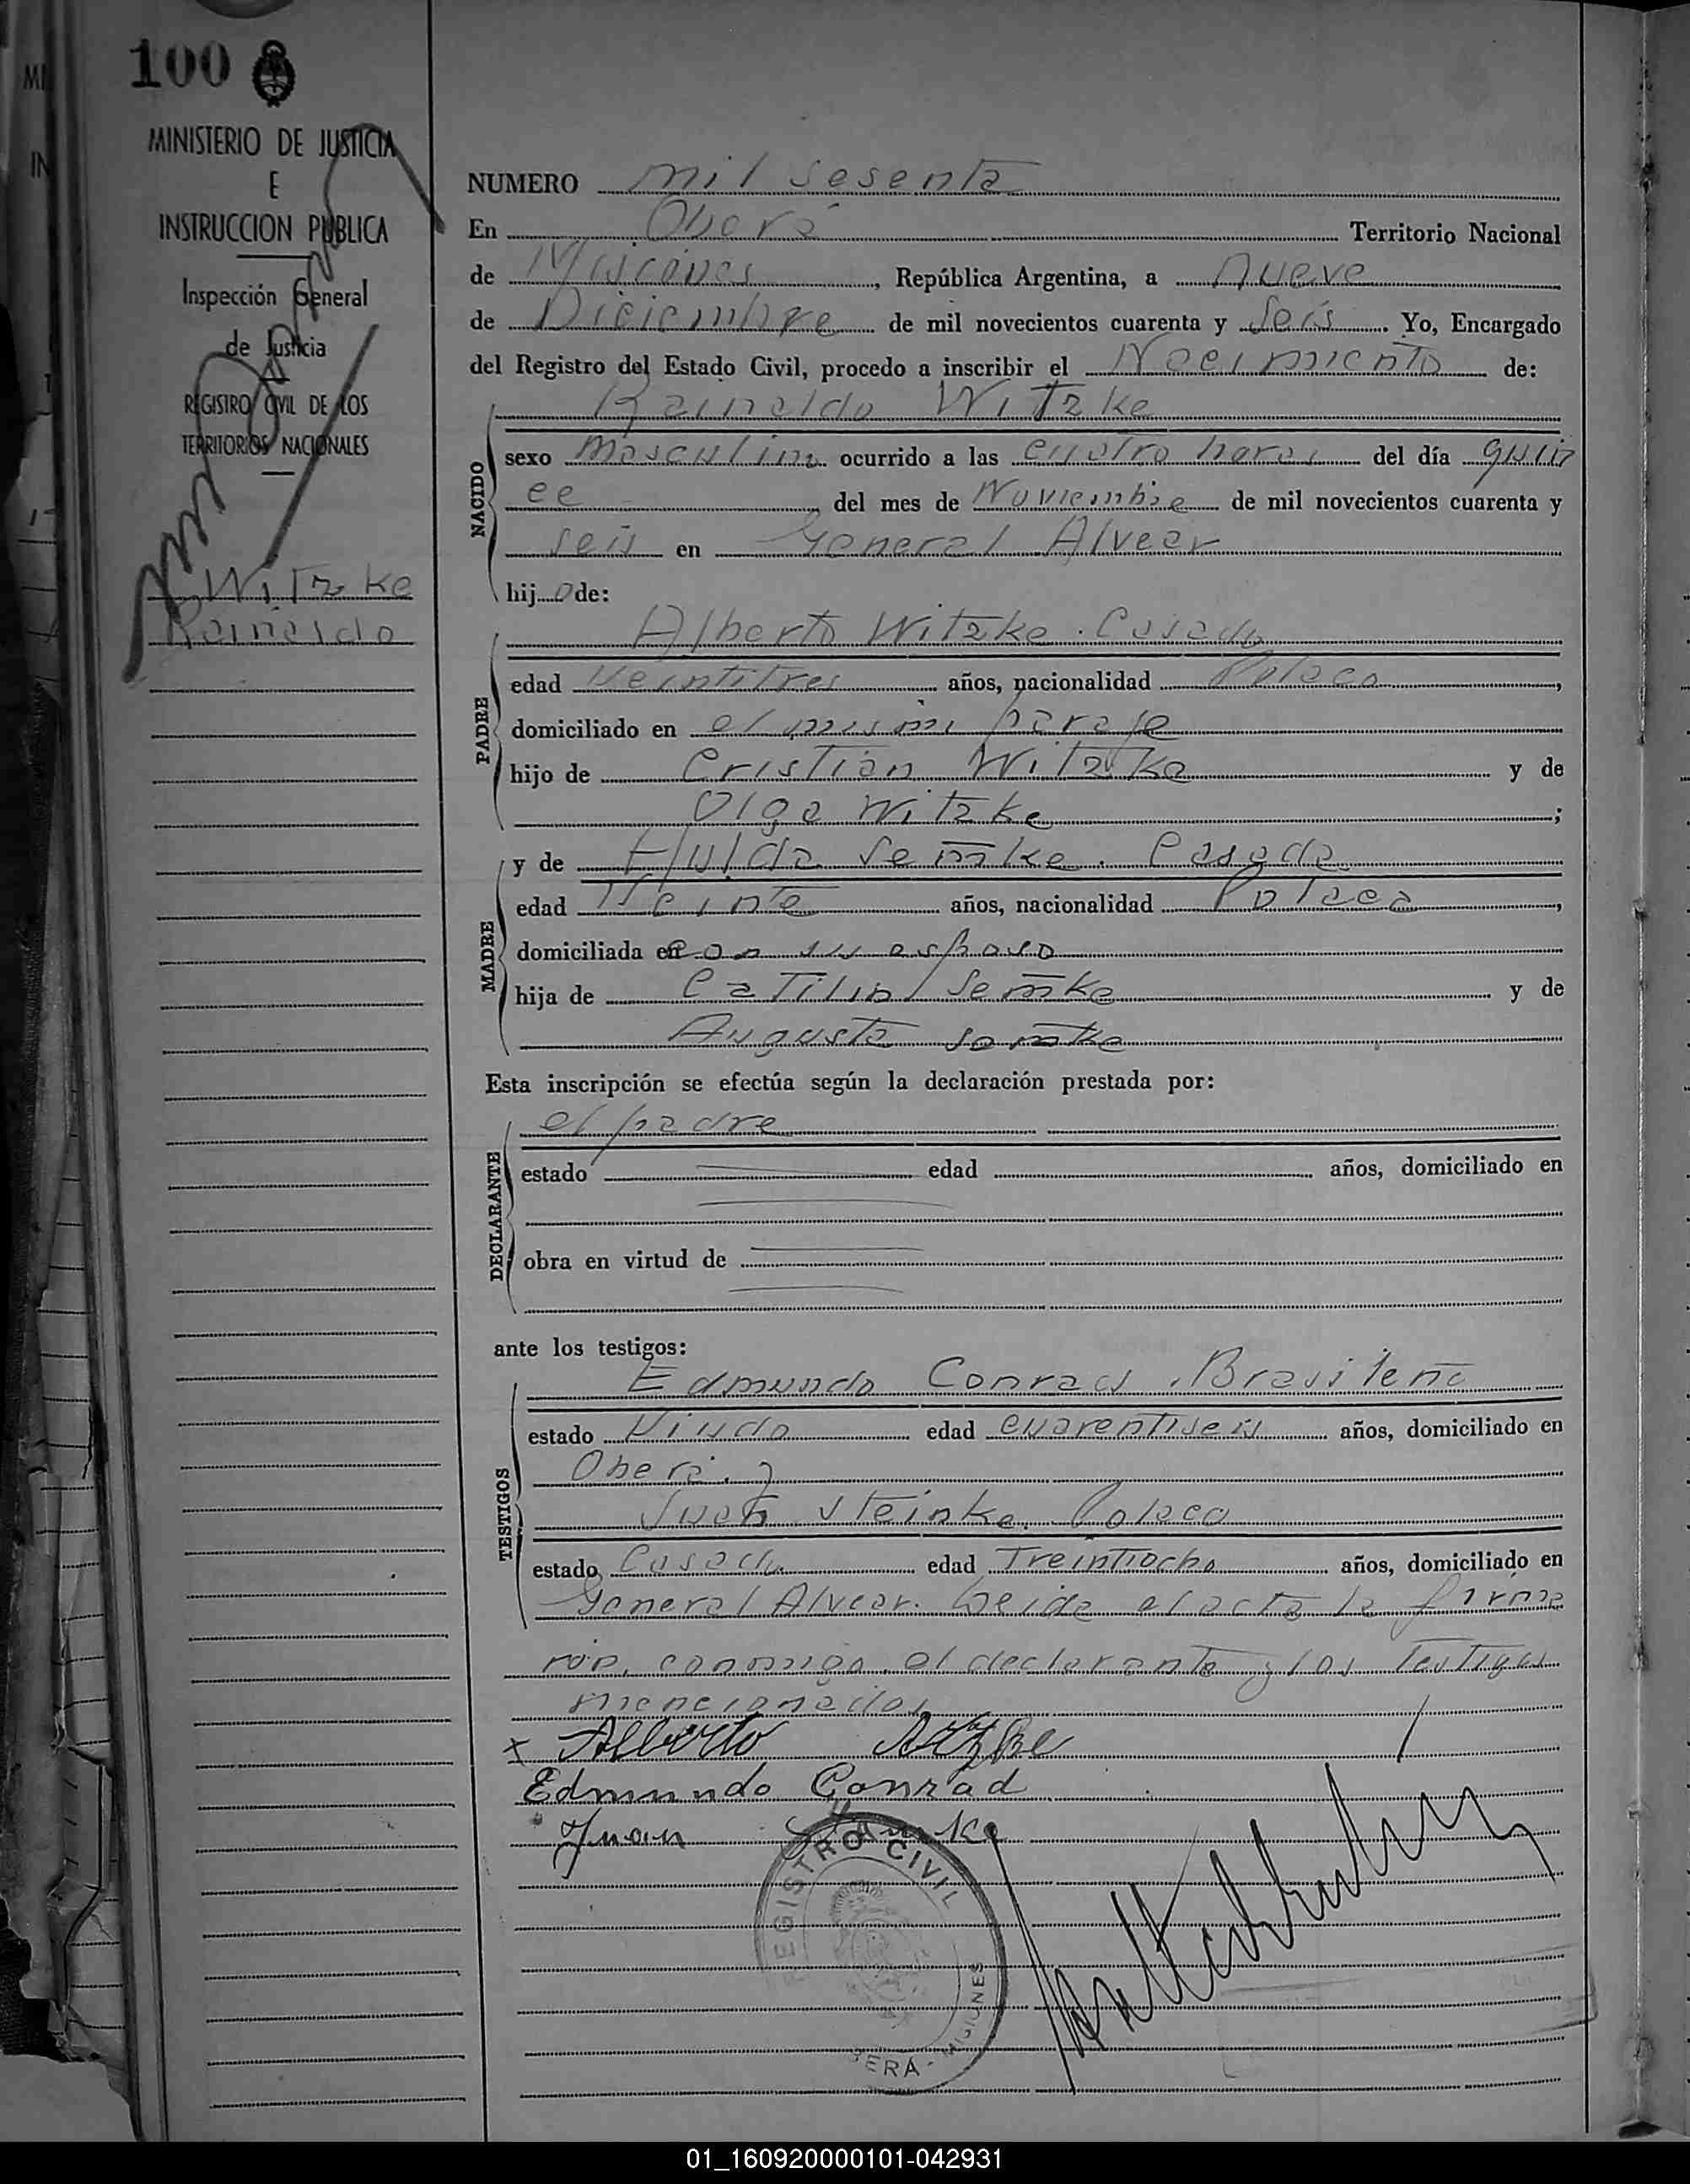 100
MINISTERIO DE JUSTICIA
E
INSTRUCCION PUBLICA
Inspección General
de Justicia
REGISTRO CIVIL DE LOS
TERRITORIOS NACIONALES
Witzke
Reinaldo
NUMERO mil sesenta
En Oberá Territorio Nacional
de Misiones, República Argentina, a nueve
de Diciembre de mil novecientos cuarenta y seis. Yo, Encargado
del Registro del Estado Civil, procedo a inscribir el Nacimiento de:
NACIDO
Reinaldo Witzke
sexo masculino ocurrido a las cuatro horas del día quin
ce del mes de Noviembre de mil novecientos cuarenta y
seis en General Alvear
hijo de:
PADRE
Alberto Witzke. Casado
edad Veintitres años, nacionalidad Polaco,
domiciliado en el mismo paraje
hijo de Cristian Witzke y de
Olga Witzke;
MADRE
y de Hulda Semke. Casada
edad Veinte años, nacionalidad Polaca,
domiciliada en con su esposo
hija de Semke y de
Augusta Semke
Esta inscripción se efectúa según la declaración prestada por:
DECLARANTE
el padre
estado edad años, domiciliado en
obra en virtud de
ante los testigos:
TESTIGOS
Edmundo Conrad. Brasileño
estado Viudo edad cuarentiseis años, domiciliado en
Oberá. y
Juan Steinke. Polaco
estado Casado edad Treintiocho años, domiciliado en
General Alvear. Leida el acta la firma
rón, conmigo, el declarante y los Testigos
mencionados
x Alberto Witzke
Edmundo Conrad
Juan Steinke
REGISTRO CIVIL
OBERÁ - MISIONES
01_160920000101-042931